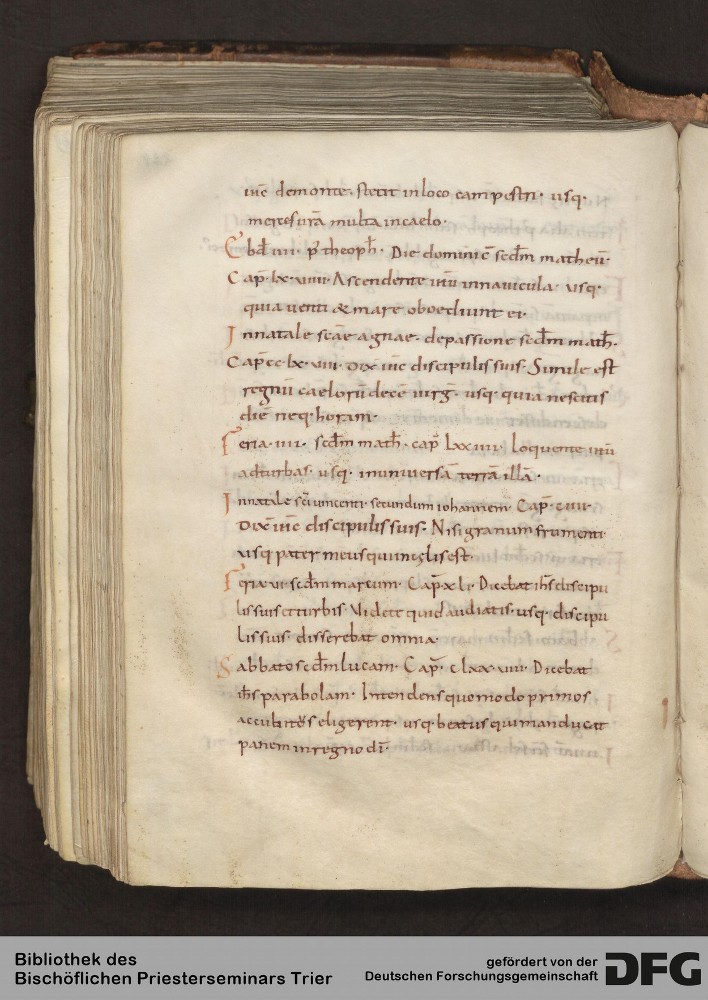 ihc demonte· stetit in loco campestri· usq·
merces urā multa in caelo·
Ebd̄ iiii· p̄ theoph̄· Die dominic̄ scdm̄ matheū·
Cap̄· lx· viiii· Ascendente ihū in navicula· usq·
quia venti & mare oboediunt ei·
In natale scāe agnae· de passione scdm̄ math̄·
Cap̄ cc· lx· viii· Dix̄ ihc discipulis suis· Simile est
regnū caelorū decē virḡ· usq· quia nescitis
diē neq· horam·
Feria· iiii· scdm̄ math̄· cap̄ lxx iiii· loquente ihū
ad turbas· usq· in universā terrā illā·
In natale sc̄i vincenti· secundum iohannem· Cap̄·
Dix̄ ihc discipulis suis· Nisi granum frumenti·
usq pater meus qui in celis est·
Feria vi· scdm̄ marcum· Cap̄ xli· Dicebat ihs discipu
lis suis et turbis· Videte quid audiatis· usq· discipu
lis suis· disserebat omnia·
Sabbato scdm̄ lucam· Cap̄· clxx· viiii· Dicebat
ihs parabolam· Intendens quomodo primos
accubitos eligerent· usq· beatus qui manducat
panem in regno dī·
Bibliothek des
Bischöflichen Priesterseminars Trier
gefördert von der
Deutschen Forschungsgemeinschaft
DFG